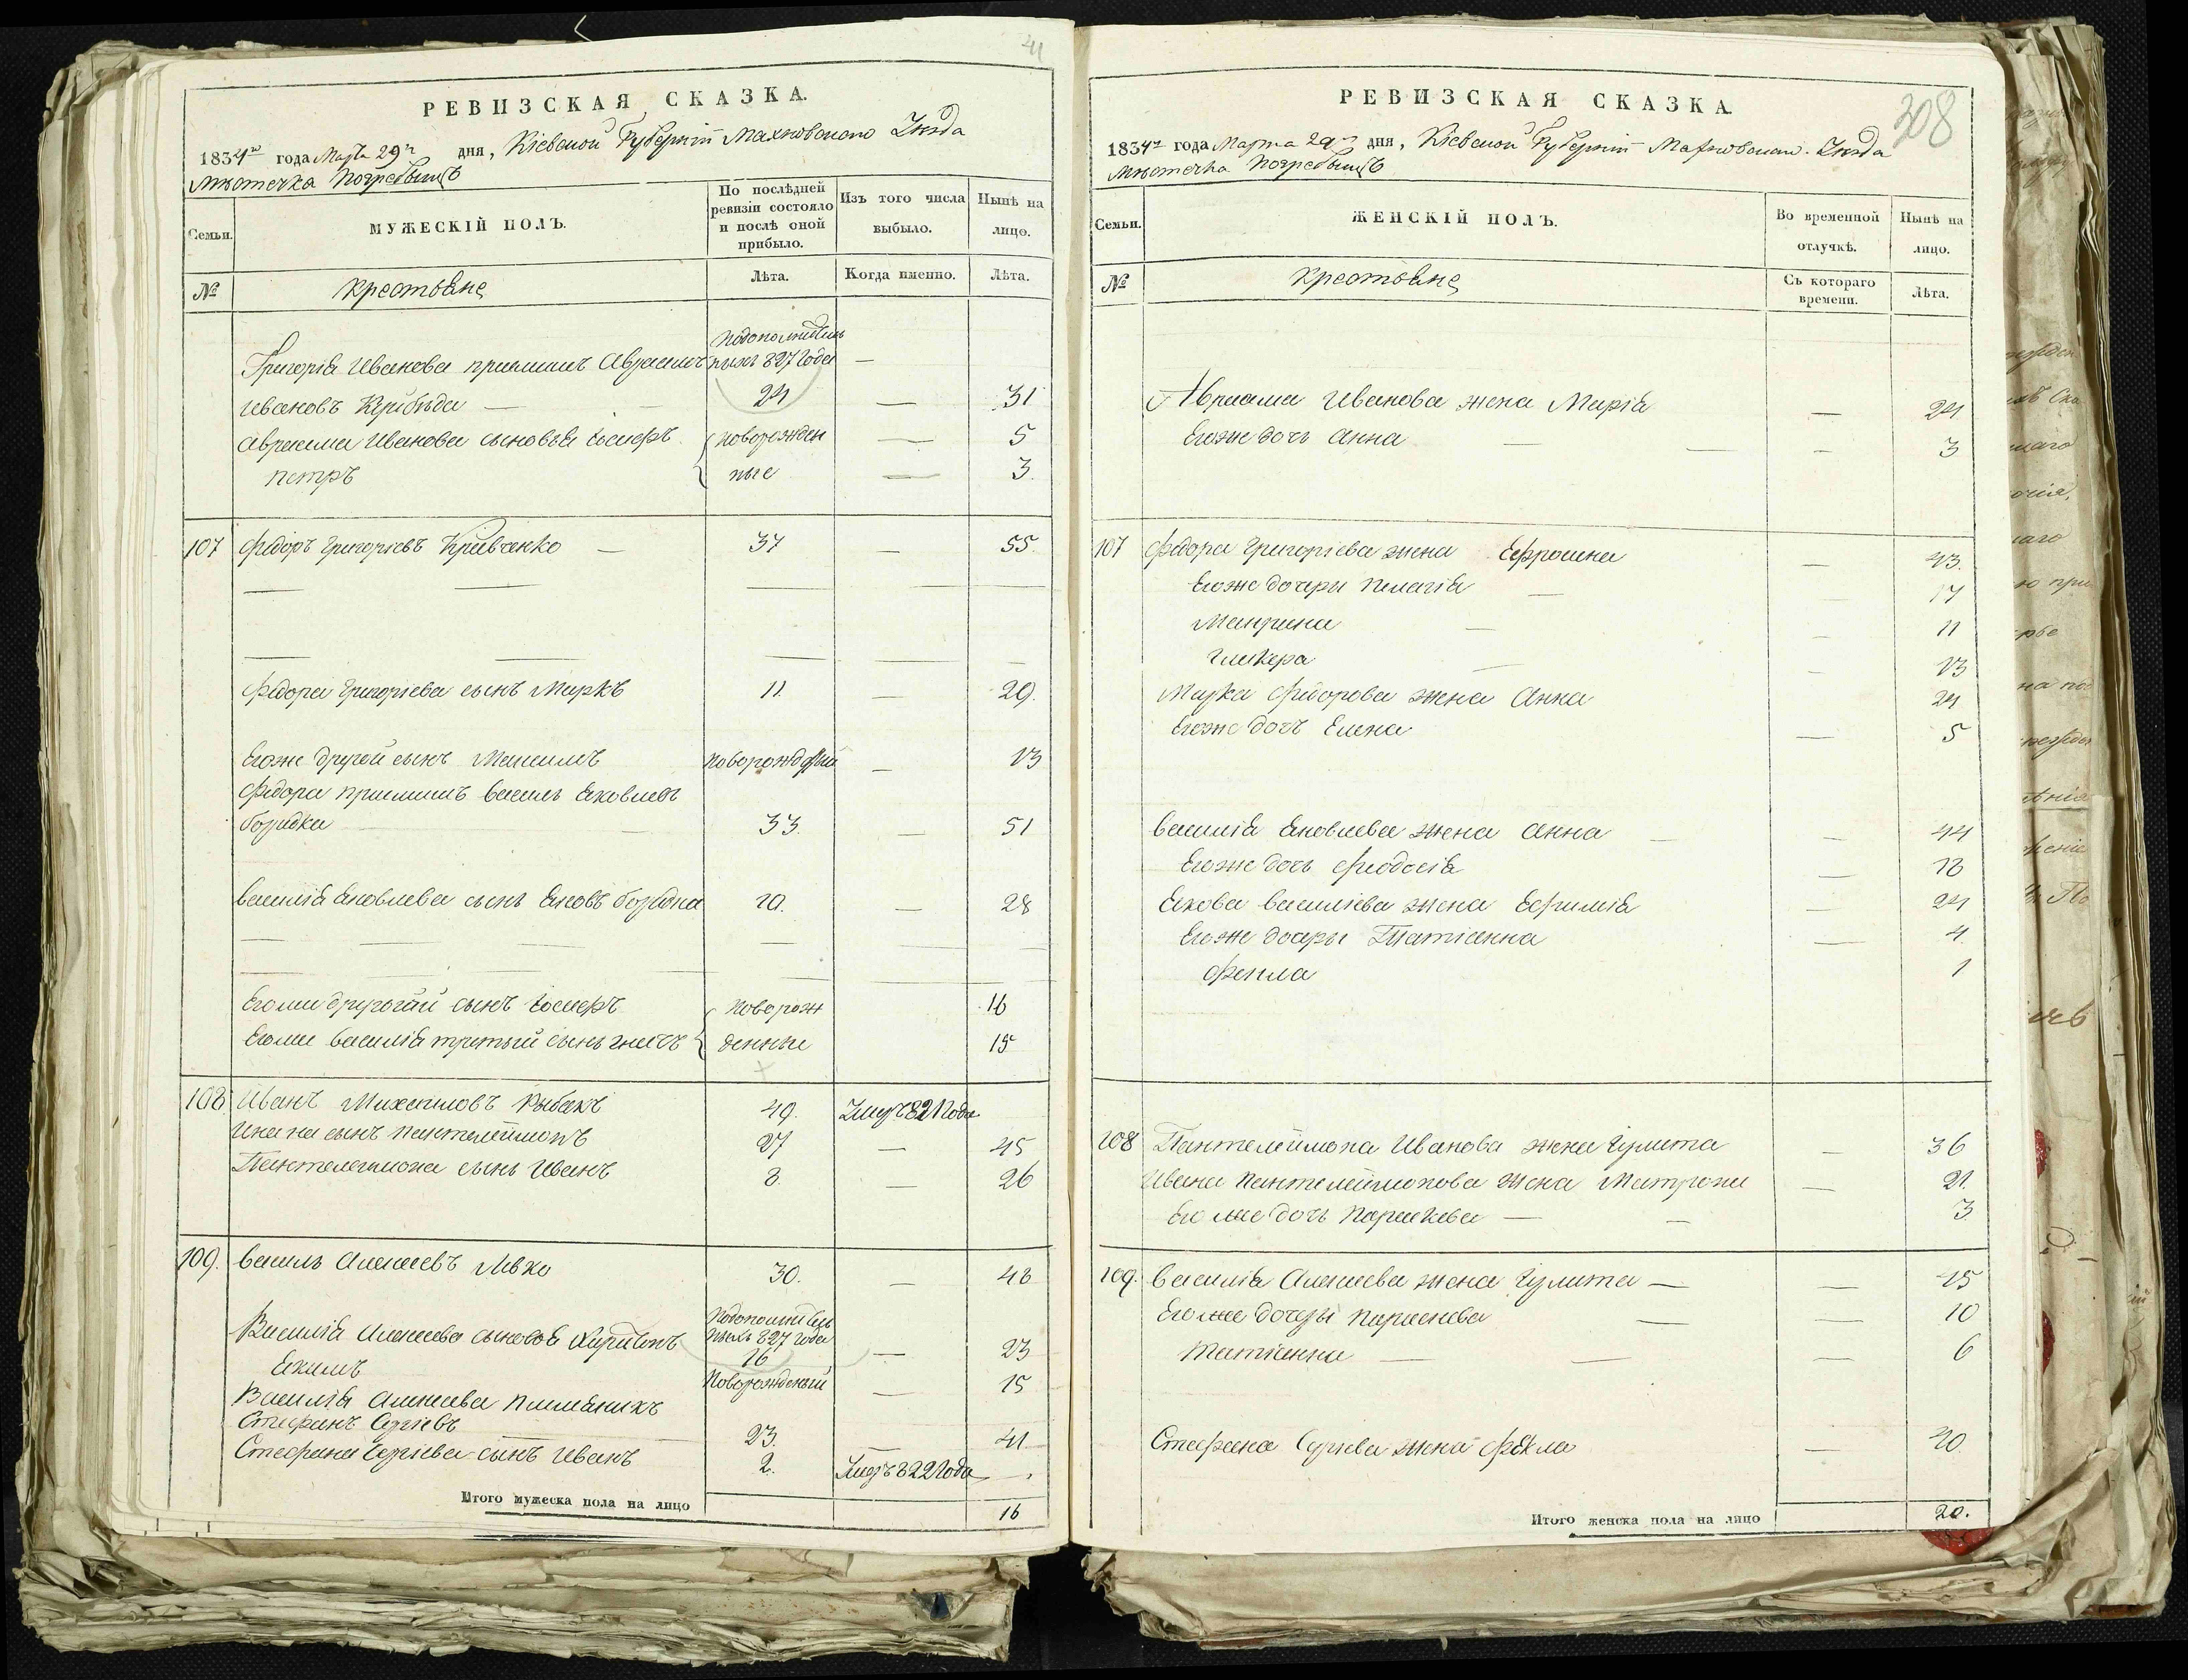 41
РЕВИЗСКАЯ СКАЗКА.
1834го года Марта 29го дня, Кіевской Губерніи Махновского Уезда
Мѣстечка Погребыщъ
Семьи.
МУЖЕСКІЙ ПОЛЪ.
По послѣдней ревизіи состояло и послѣ оной прибыло.
Изъ того числа выбыло.
Нынѣ на лицо.
№
крестьяне
Лѣта.
Когда именно.
Лѣта.
Григорія Иванова приймищъ Авраамъ
Ивановъ — 24 — 31
Авраама Иванова сыновья Іосифъ новорожден — 5
петръ ные — 3.
107 Федоръ Григорьевъ Кривченко — 37 — 55.
Федора Григоріева сынъ Маркъ 11. — 29.
Егоже другой сынъ — 13
Федора приймищъ василь Яковлевъ
33. — 51
василія Яковлева сынъ Яковъ 10. — 28
другой сынъ Іосифъ новорож 16
василія третьій сынъ денные 15
108 Иванъ Михайловъ Рыбакъ 49. 821 года
сынъ пантелеймонъ 27 — 45
Пантелеймона сынъ Иванъ 8. — 26
109. василь Алексеевъ Левко 30. — 48
827 года
Василія Алексеева сыновья 16 — 23
Якимъ Новорожденый — 15
Василія Алексеева племяникъ
Стефанъ Сергіевъ 23. — 41
Стефана Сергіева сынъ Иванъ 2. 822 года —
Итого мужеска пола на лицо 16
308
РЕВИЗСКАЯ СКАЗКА
1834го года Марта 29го дня, Кіевской Губерніи Махновского Уезда
Мѣстечка Погребыщъ
Семьи.
ЖЕНСКІЙ ПОЛЪ.
Во временной отлучкѣ.
Нынѣ на лицо.
№
крестьяне
Съ котораго времени.
Лѣта.
Авраама Иванова жена Марія — 24
Егоже дочь Анна — 3
107 Федора Григоріева жена Ефросина — 43.
Егоже дочери Пелагія — 17
— 11
Гликера — 13
Марка Федорова жена Анна 24
Егоже дочь Елена — 5
василія Яковлева жена Анна — 44
Егоже дочь Феодосія — 18
Якова василіева жена Ефимія — 24
Егоже дочери Татіанна — 4.
Фекла 1
108 Пантелеймона Иванова жена Іулита — 36
Ивана Пантелеймонова жена Матрона — 21.
Егоже дочь Параскева — 3
109. василія Алексеева жена Іулита — 45
Егоже дочери Параскева — 10
Татіанна — 6
Стефана Сергіева жена Фекла — 40
Итого женска пола на лицо 20.